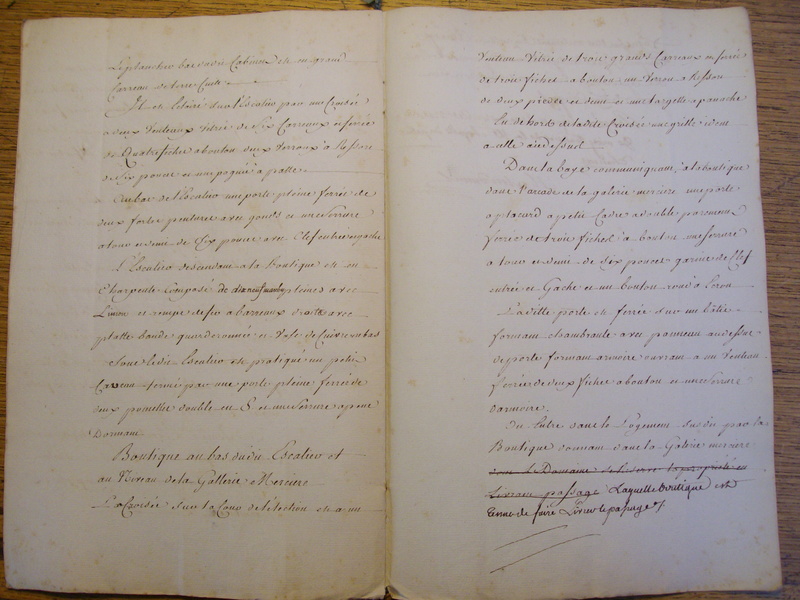 Le plancher bas dudit Cabinet est en grand
Carreau de terre Cuite
Il est Eclairé sur l'Escalier par une Croisée
a deux Venteaux vitrée de Six Carreaux et ferrée
de Quatre fiches a bouton deux verroux a Ressort
de Six pouces et une poignée a patte
Au bas de l'Escalier une porte pleine ferrée de
deux fortes pentures avec gonds et une Serrure
a tour et demi de Six pouces avec Clef entrée et gache
L'Escalier descendant a la Boutique est en
Charpente Composé de dix neuf marches pleines avec
Limon et rampe de fer a barreaux droits avec
platte bande quarderonnée et Vase de Cuivre en bas
Sous ledit Escalier est pratiqué un petit
Caveau fermé par une porte pleine ferrée de
deux doubles en S et une Serrure a pene
Dormant
Boutique au bas dudit Escalier et
au Niveau de la Gallerie Merciere
La Croisée Sur la Cour de l'élection est a un
Venteau Vitrée de trois grands Carreaux et ferrée
de trois fiches a bouton un Verrou a Ressort
de deux pieds et demi et une targette a panache
En dehors de ladite Croisée une grille
a celle au dessus
Dans la baye communiquant a la boutique
dans l'arcade de la galerie merciere une porte
a placard a petit Cadre a double parement
ferrée de trois fiches a bouton une Serrure
a tour et demi de Six pouces garnie de Clef
entrée et Gache et un bouton rond a
Ladite porte est ferrée sur un bâtis
formant chambranle avec panneau au dessus
de porte formant armoire ouvrant a un Venteau
ferrée de deux fiches a bouton et une Serrure
d'armoire.
On Entre dans le Logement susdit par la
Boutique donnant dans la Galerie merciere
dont le Domaine la propriété en
Livrant passage Laquelle Boutique est
tenue de faire Livrer le passage